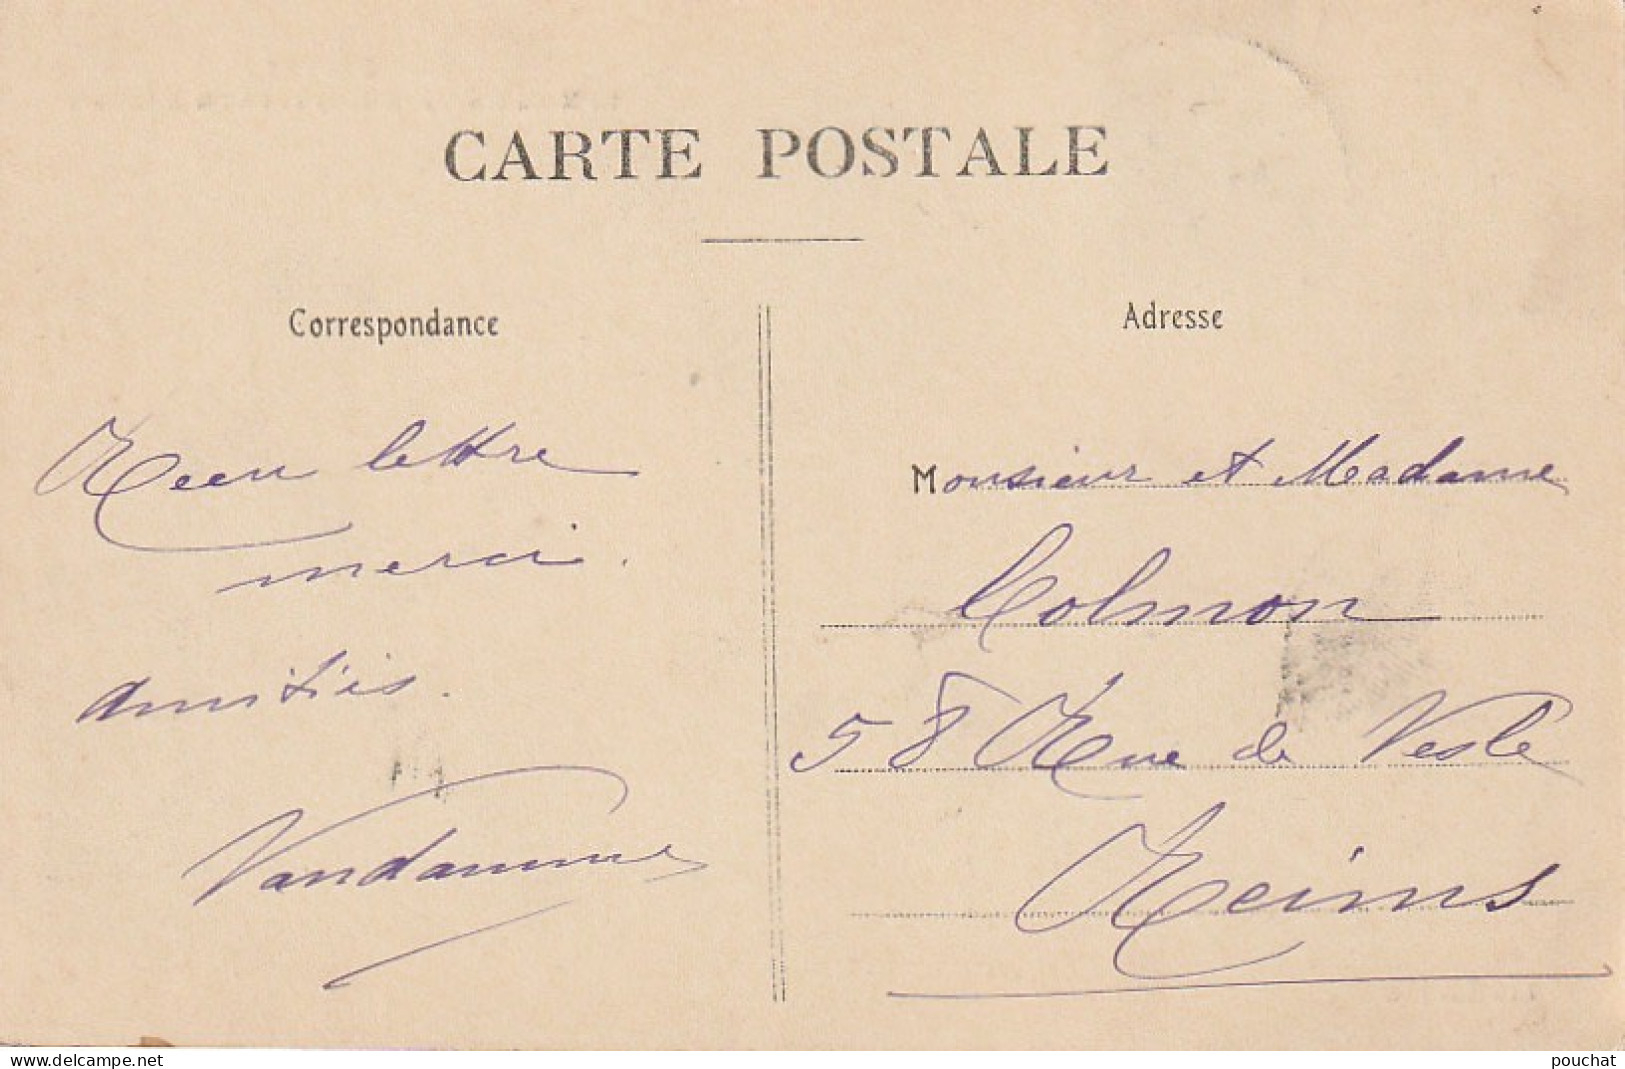 CARTE POSTALE
Correspondance
Reçu lettre
merci.
amitiés.
Vandamme
Adresse
Monsieur et Madame
Colmon
58 Rue de Vesle
Reims
www.delcampe.net
pouchat